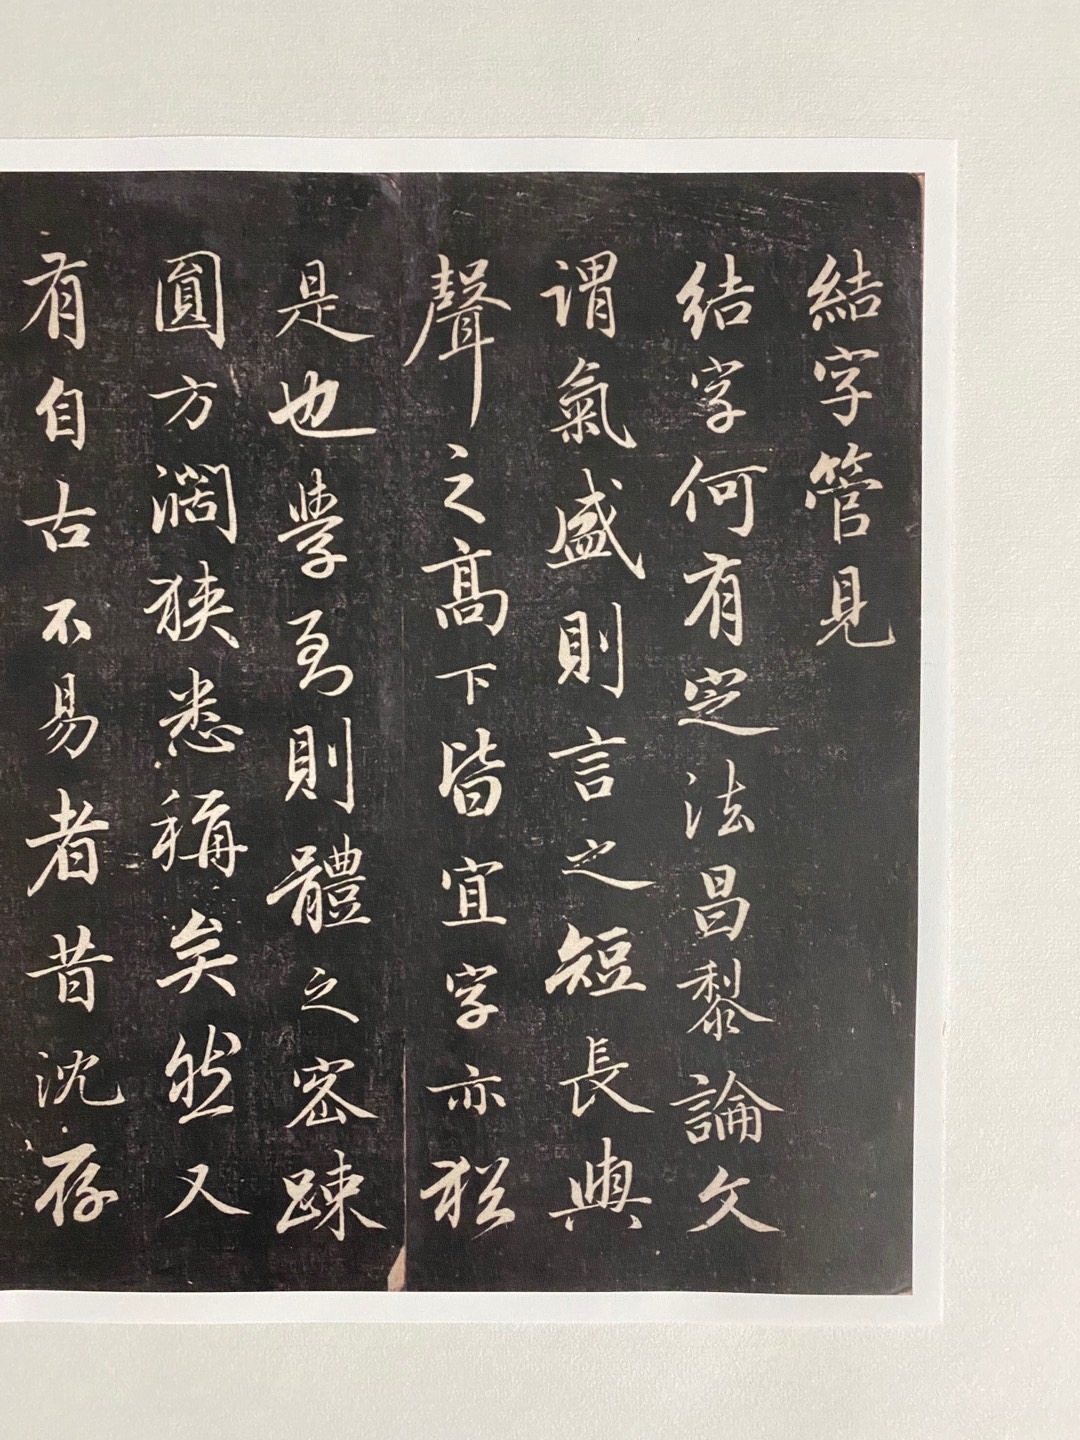 結字管見
結字何有定法昌黎論文
謂氣盛則言之短長與
聲之高下皆宜字亦猶
是也學至則體之密疎
圓方濶狹悉稱矣然又
有自古不易者昔沈存